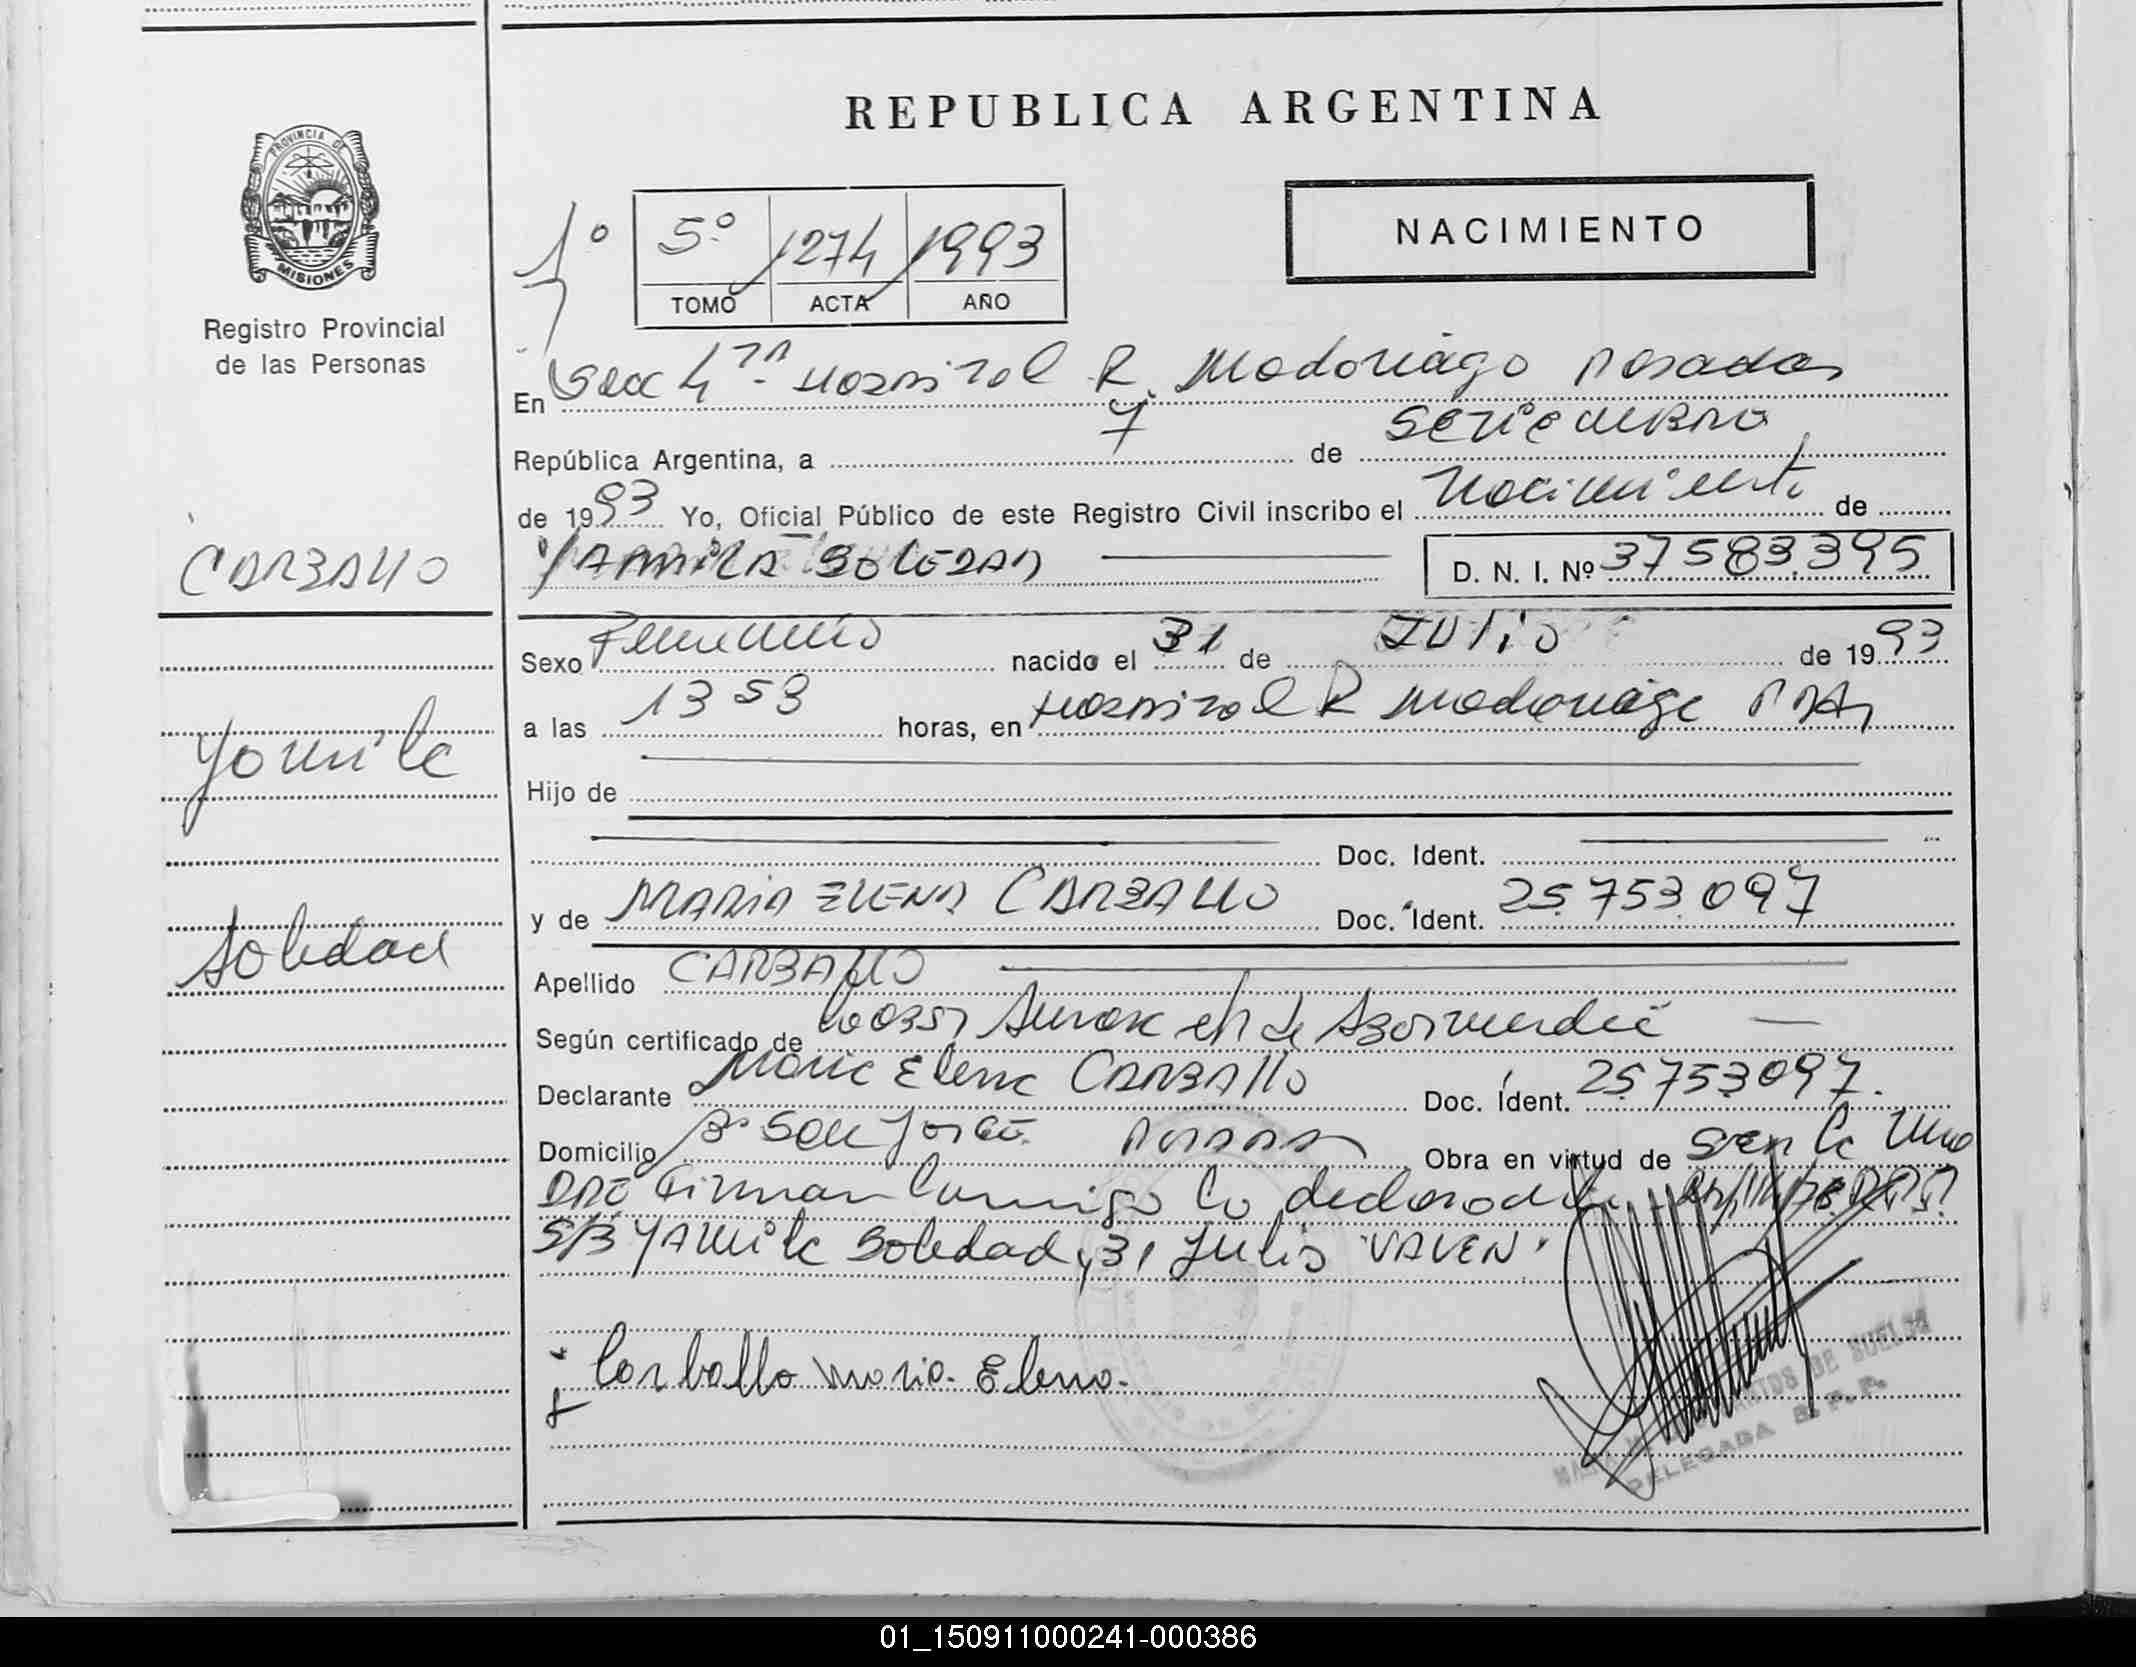 REPUBLICA ARGENTINA
PROVINCIA DE
MISIONES
Registro Provincial
de las Personas
NACIMIENTO
1º 5º 1274 1993
TOMO ACTA AÑO
En Sec 4ta Hospital R. Madariaga Posadas
República Argentina, a 7 de Setiembre
de 1993 Yo, Oficial Público de este Registro Civil inscribo el Nacimiento de
CARBALLO
YAMILA SOLEDAD D. N. I. Nº 37583.395
Sexo Femenino nacido el 31 de Julio de 1993
a las 13 53 horas, en Hospital R Madariaga PDAS
Yamila
Hijo de
Doc. Ident.
y de MARIA ELENA CARBALLO Doc. Ident. 25.753.097
Soledad
Apellido CARBALLO
Según certificado de
Declarante Maria Elena CARBALLO Doc. Ident. 25.753.097.
Domicilio Bº San Jorge. Posadas Obra en virtud de ser la
firman conmigo la
S/B YAMILA Soledad, 31 Julio VALEN
Carballo Maria Elena.
DE
DELEGADA R.P.P.
01_150911000241-000386